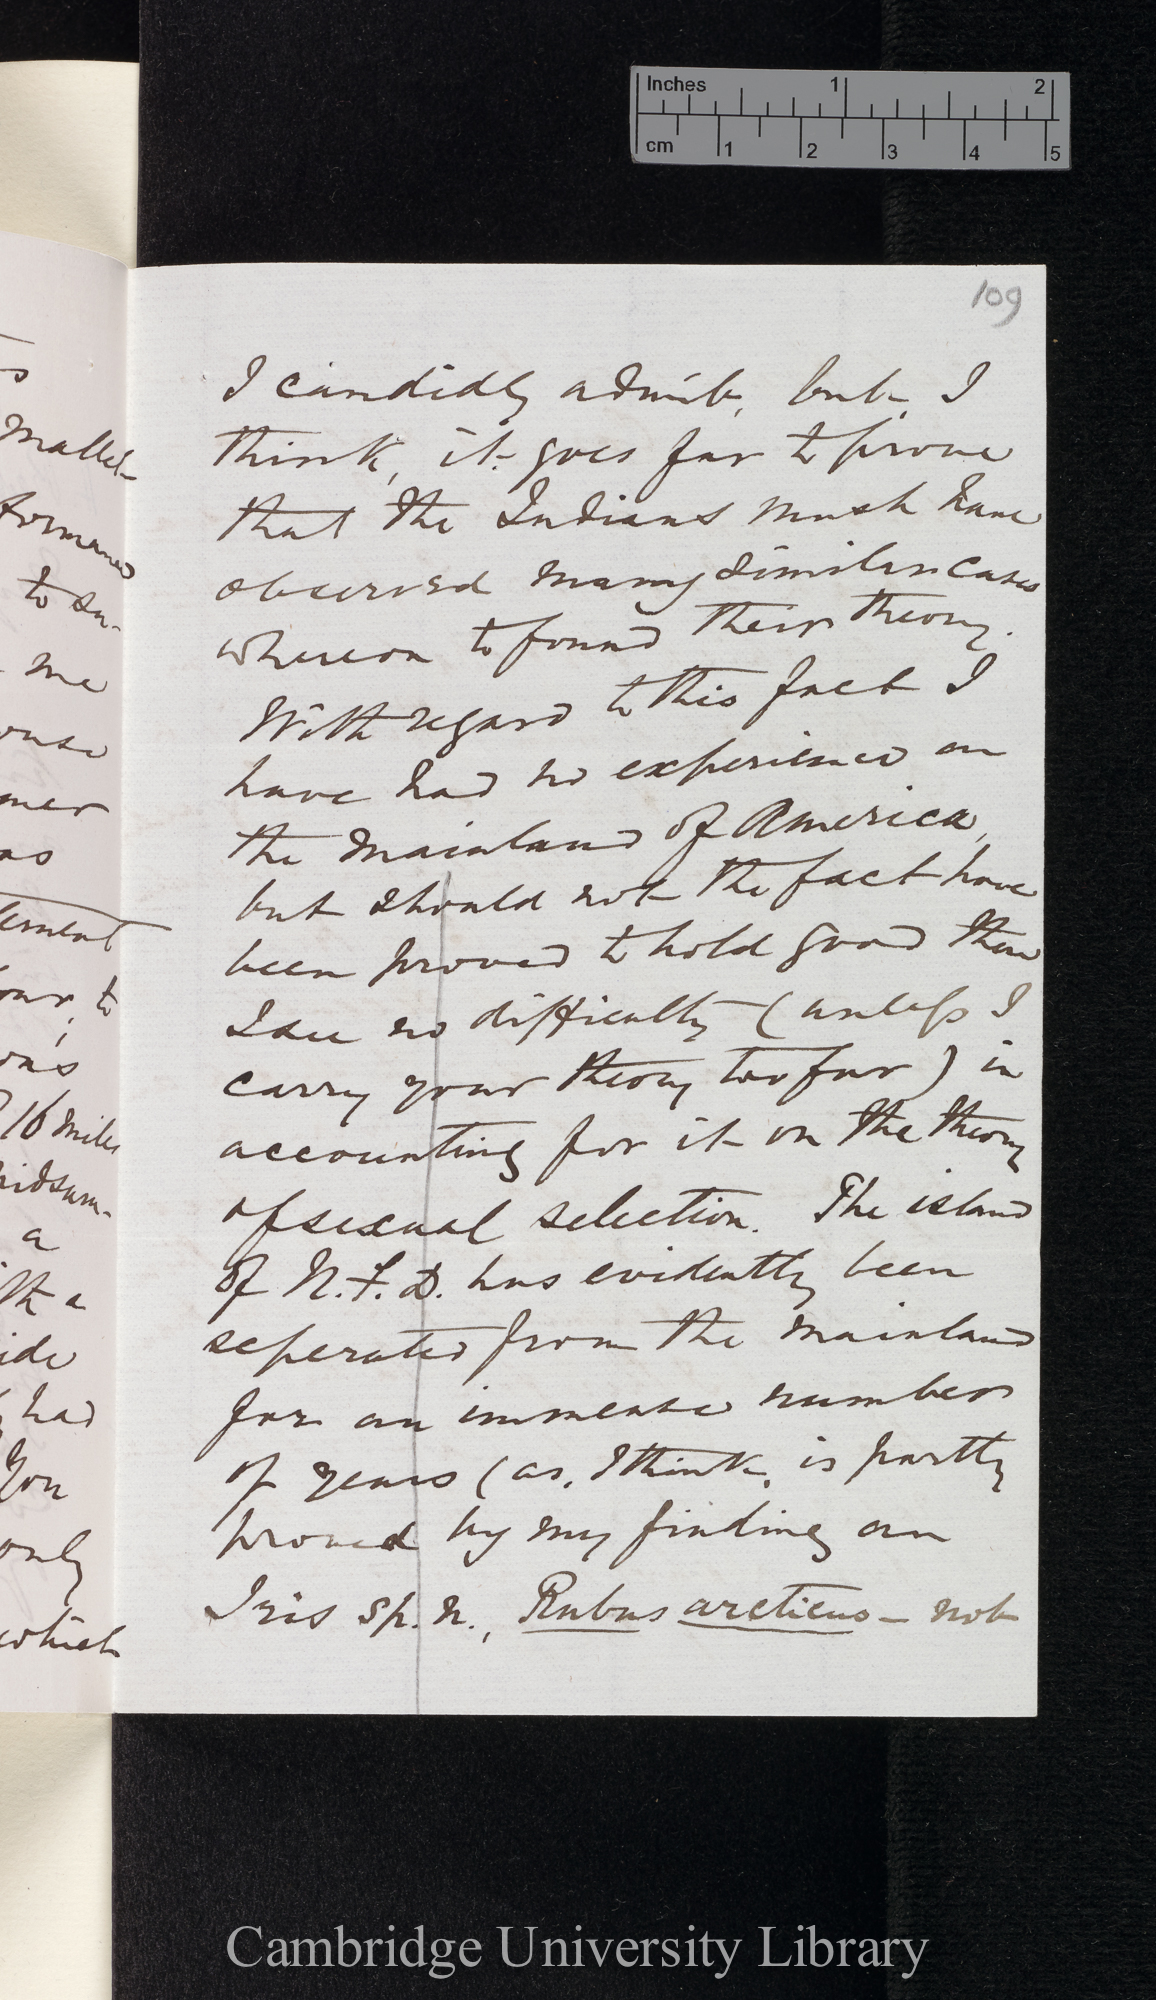 Inches 1 2
cm 1 2 3 4 5
109
I candidly admit, but, I
think, it goes far to prove
that the Indians must have
observed many similar cases
whereon to found their theory.
With regard to this fact I
have had no experience on
the mainland of America,
but should not the fact have
been proved to hold good there
I see no difficulty (unless I
carry your theory too far) in
accounting for it on the theory
of sexual selection. The island
of N.F.D. has evidently been
seperated from the mainland
for an immense number
of years (as, I think, is partly
proved by my finding an
Iris sp. n., Rubus arcticus – not
Mallet-
to su-
me
mer
as
to
16 miles
midsum-
a
had
You
only
which
Cambridge University Library